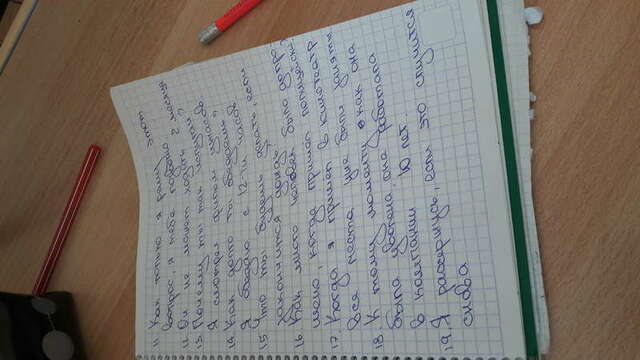 11. Как только я решу этот
вопрос, я тебе позвоню.
12. Он не может ходить 2 месяца
13. Почему ты так напуган?
Я смотрел фильм ужасов.
14. Как долго ты обедаешь?
Я обедаю с 12-ти часов
15. Что ты будешь делать, если
закончится дождь?
16. Как много человек было допро-
шено, когда пришёл полицейский?
17. Когда я пришёл в кинотеатр
все места уже были заняты.
18. К тому моменту как она
была уволена, она работала
в компании 10 лет
19. Я рассержусь, если это случится
снова